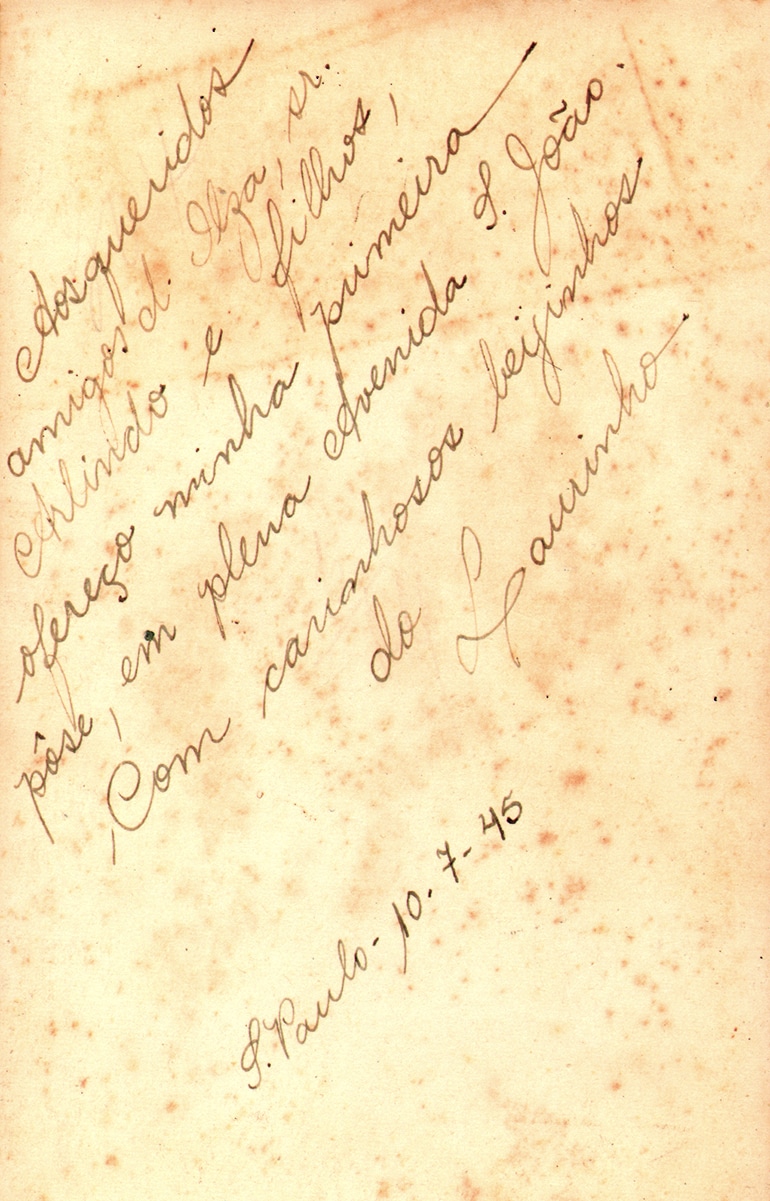 Aos queridos
amigos d. Ilza, sr.
Arlindo e filhos,
ofereço minha primeira
pôse, em plena Avenida S. João.
Com carinhosos beijinhos
do Laurinho
S. Paulo - 10-7-45